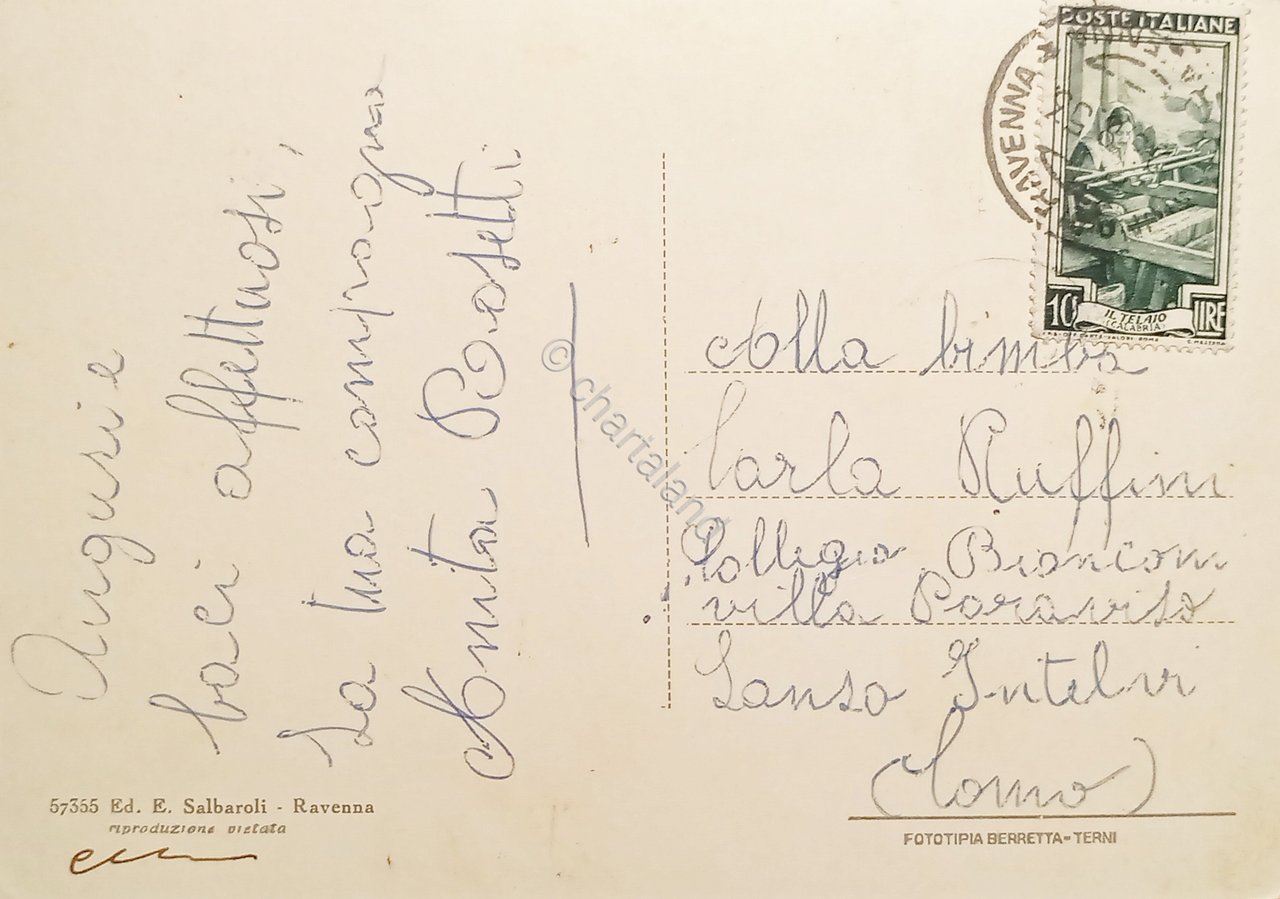 Auguri e
baci affettuosi,
La tua compagna
Annita Rosetti
57355 Ed. E. Salbaroli - Ravenna
riproduzione vietata
© chartaland
POSTE ITALIANE
RAVENNA
10
LIRE
IL TELAIO
(CALABRIA)
Alla bimba
Carla Ruffini
Collegio Bianconi
villa Paraviso
Lanso Intelvi
(Como)
FOTOTIPIA BERRETTA - TERNI